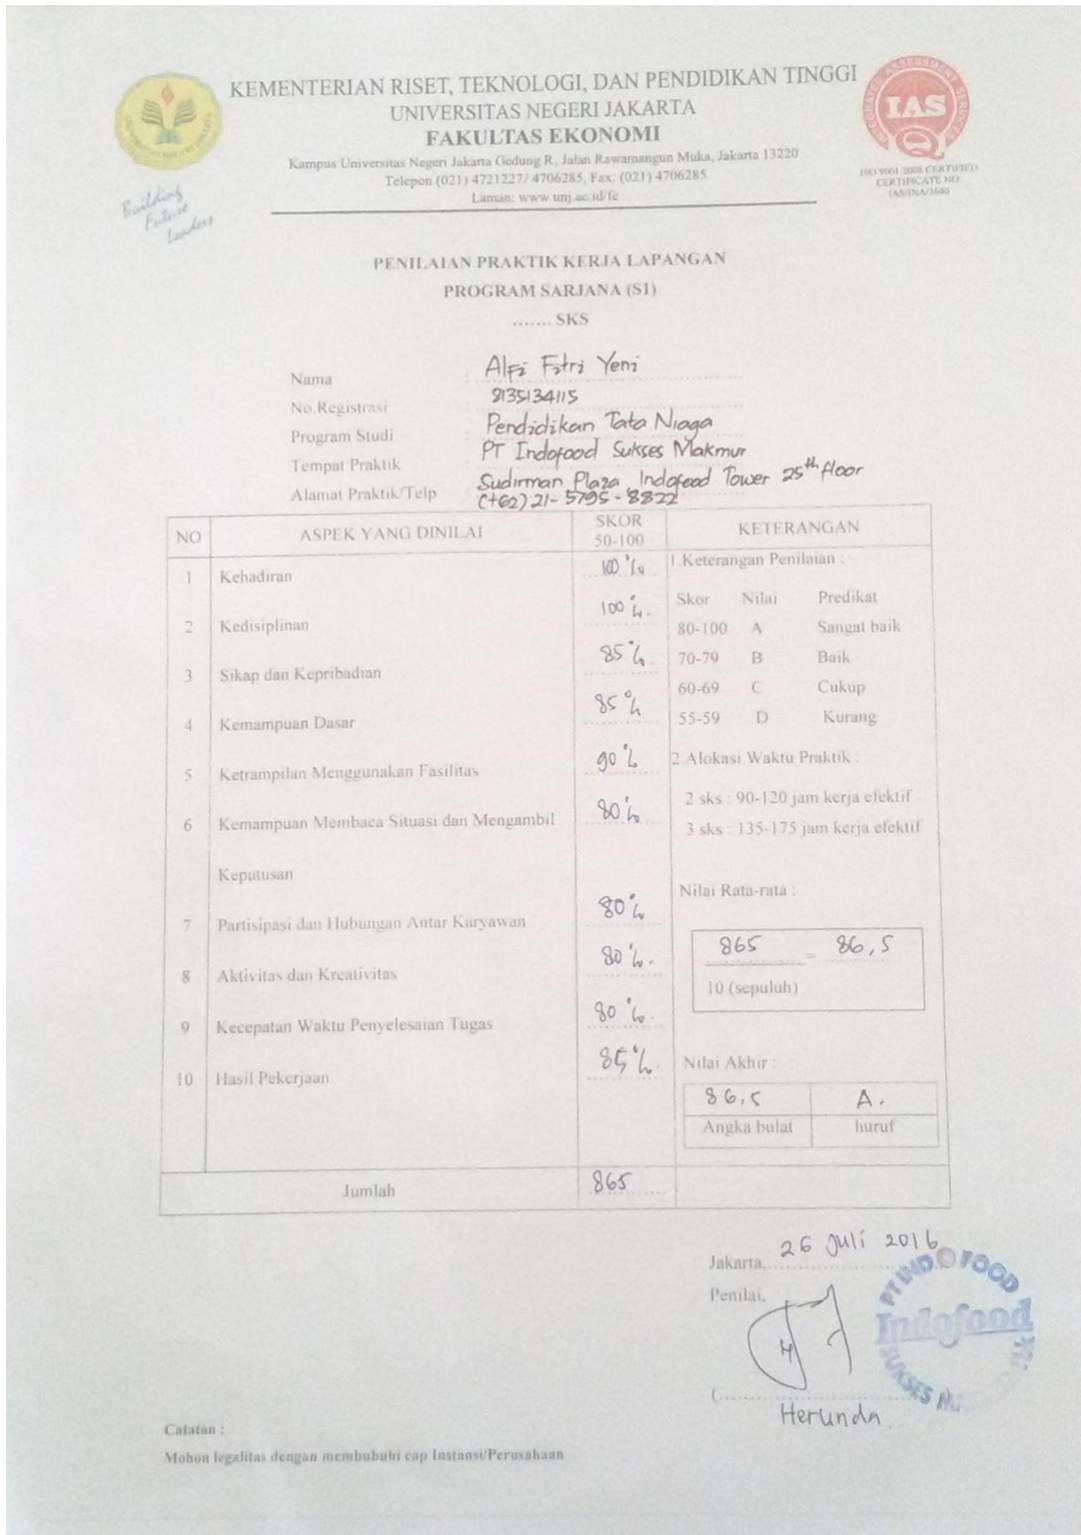 KEMENTERIAN RISET, TEKNOLOGI, DAN PENDIDIKAN TINGGI
UNIVERSITAS NEGERI JAKARTA
FAKULTAS EKONOMI
Kampus Universitas Negeri Jakarta Gedung R, Jalan Rawamangun Muka, Jakarta 13220
Telepon (021) 4721227/ 4706285, Fax: (021) 4706285
Laman: www.unj.ac.id/fe
Building
Future
Leaders
INTEGRATED ASSESSMENT SERVICES
IAS
ISO 9001:2008 CERTIFIED
CERTIFICATE NO:
IAS/INA/3640
PENILAIAN PRAKTIK KERJA LAPANGAN
PROGRAM SARJANA (S1)
....... SKS
Nama : Alfi Fitri Yeni
No.Registrasi : 8135134115
Program Studi : Pendidikan Tata Niaga
Tempat Praktik : PT Indofood Sukses Makmur
Alamat Praktik/Telp : Sudirman Plaza, Indofood Tower 25th floor
(+62) 21- 5795 - 8822
NO ASPEK YANG DINILAI SKOR 50-100 KETERANGAN
1 Kehadiran 100%
2 Kedisiplinan 100%.
3 Sikap dan Kepribadian 85%
4 Kemampuan Dasar 85%
5 Ketrampilan Menggunakan Fasilitas 90%
6 Kemampuan Membaca Situasi dan Mengambil 80%
Keputusan
7 Partisipasi dan Hubungan Antar Karyawan 80%
8 Aktivitas dan Kreativitas 80%.
9 Kecepatan Waktu Penyelesaian Tugas 80%.
10 Hasil Pekerjaan 85%.
Jumlah 865
1.Keterangan Penilaian :
Skor Nilai Predikat
80-100 A Sangat baik
70-79 B Baik
60-69 C Cukup
55-59 D Kurang
2.Alokasi Waktu Praktik :
2 sks : 90-120 jam kerja efektif
3 sks : 135-175 jam kerja efektif
Nilai Rata-rata :
865 = 86,5
10 (sepuluh)
Nilai Akhir :
86,5 A.
Angka bulat huruf
Jakarta, 26 Juli 2016
Penilai,
PT INDOFOOD
Indofood
SUKSES
Herunda.
Catatan :
Mohon legalitas dengan membubuhi cap Instansi/Perusahaan